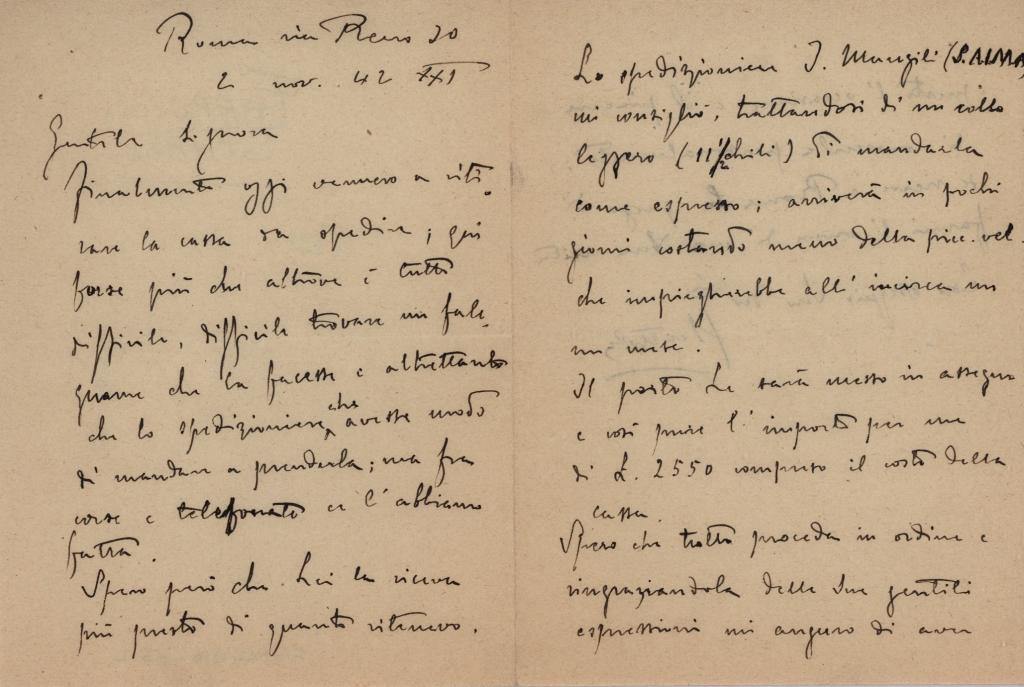 Roma via Reno 30
2 nov. 42 XXI
Gentile Signora
finalmente oggi vennero a riti-
rare la cassa da spedire; qui
forse più che altrove è tutto
difficile, difficile trovare un fale-
gname che la facesse e altrettanto
che lo spedizioniere che avesse modo
di mandare a prenderla; ma fra
corse e telefonate ce l'abbiamo
fatta.
Spero però che Lei la riceva
più presto di quanto ritenevo.
Lo spedizioniere I. Mangili (S.AIMA)
mi consigliò, trattandosi di un collo
leggero (11 1/2 chili) di mandarla
come espresso; arriverà in pochi
giorni costando meno della picc. vel.
che impiegherebbe all'incirca un
un mese.
Il porto Le sarà messo in assegno
e così pure l'importo per me
di L. 2550 compreso il costo della
cassa.
Spero che tutto proceda in ordine e
ringraziandola delle Sue gentili
espressioni mi auguro di aver